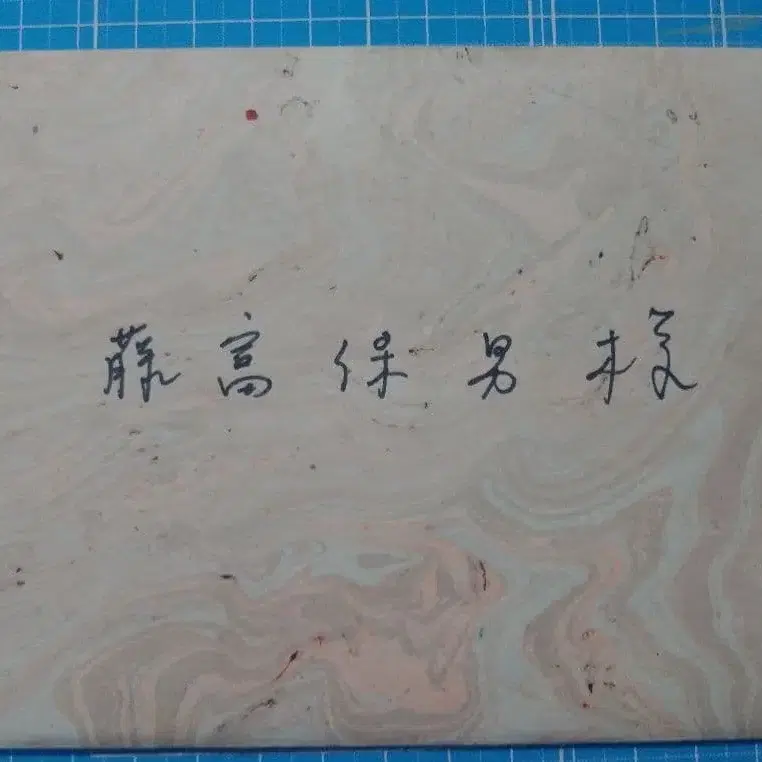 藤高保男様